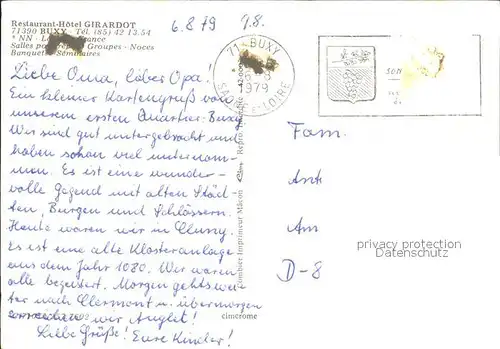 Restaurant-Hôtel GIRARDOT
71390 BUXY - Tél. (85) 42 13.54
* NN - France
Salles pour Groupes - Noces
Banquets Séminaires
6.8.79
7.8.
71-BUXY
6-8
1979
SAÔNE-ET-LOIRE
Liebe Oma, lieber Opa!
Ein kleiner Kartengruß von
unserem ersten Quartier-Buxy.
Wir sind gut untergebracht und
haben schon viel unternom-
men. Es ist eine wunder-
volle Gegend mit alten Städ-
ten, Burgen und Schlössern.
Heute waren wir in Cluny.
Es ist eine alte Klosteranlage
aus dem Jahr 1080. Wir waren
alle begeistert. Morgen gehts wei-
ter nach Clermont u. übermorgen
erreichen wir Anglet!
Liebe Grüße! Eure Kinder!
Combier Imprimeur Mâcon
cimcrome
Fam.
Am
D-8
privacy protection
Datenschutz